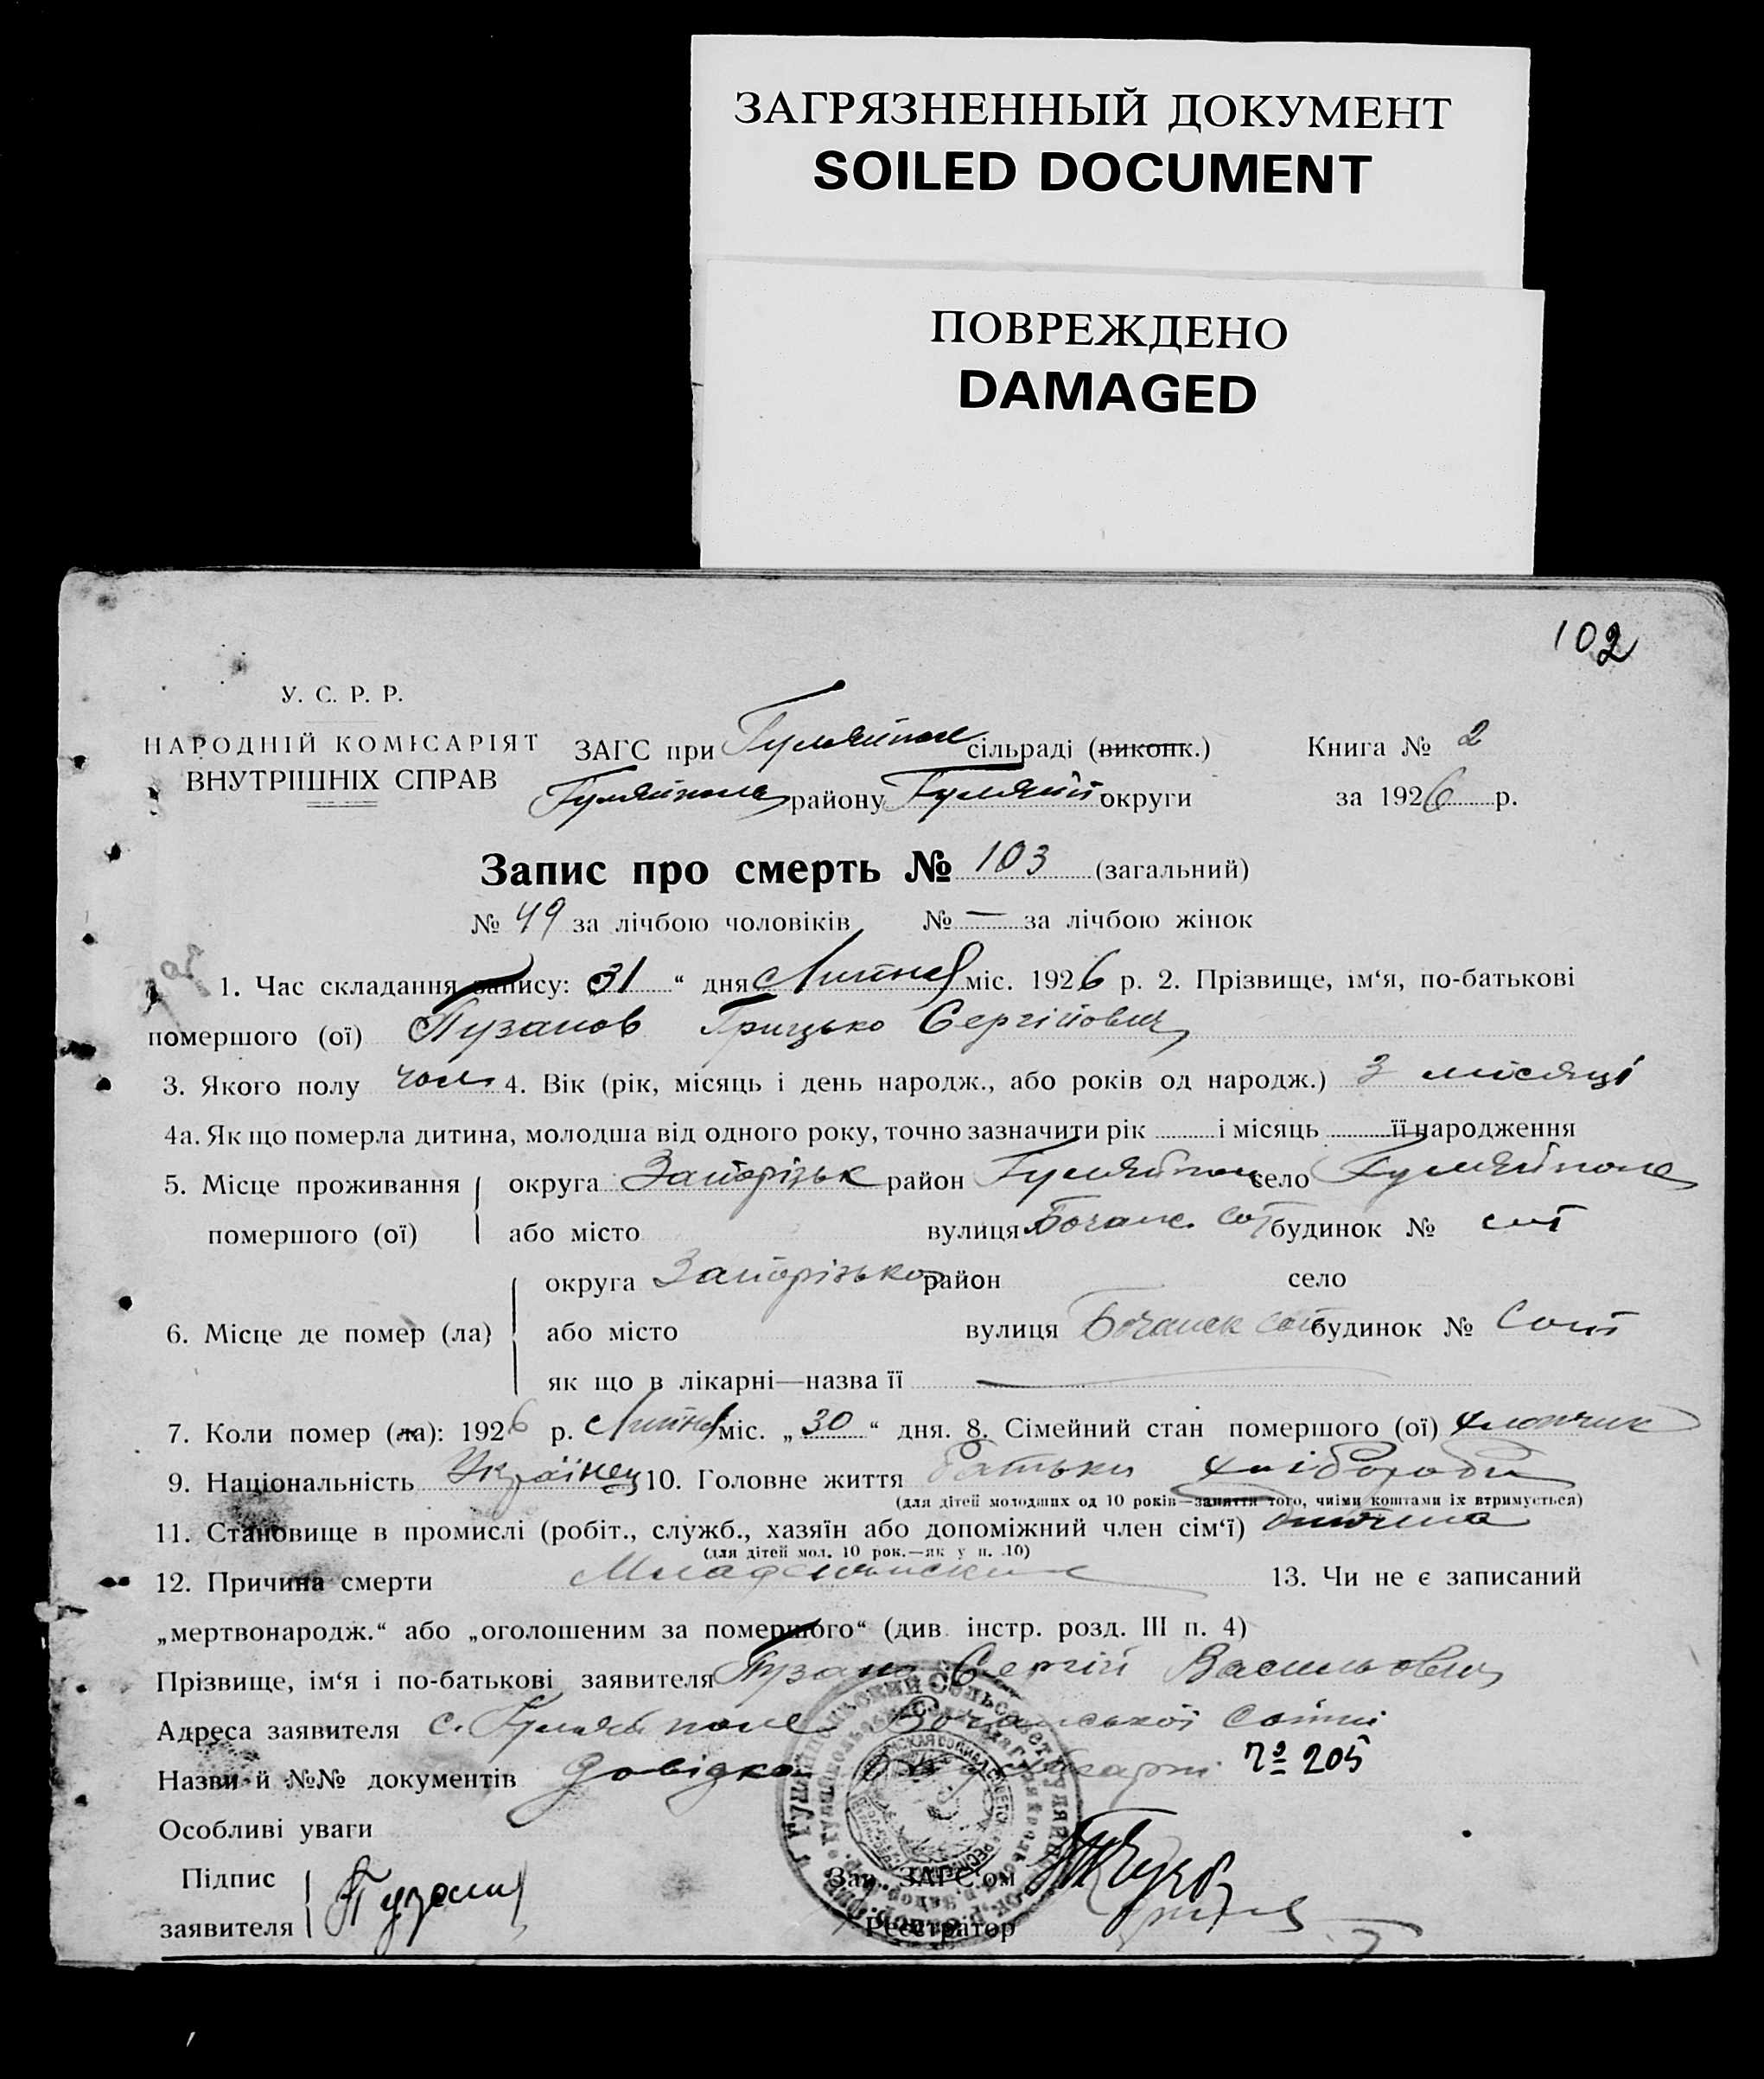 ЗАГРЯЗНЕННЫЙ ДОКУМЕНТ
SOILED DOCUMENT
ПОВРЕЖДЕНО
DAMAGED
102
У. С. Р. Р.
НАРОДНІЙ КОМІСАРІЯТ
ВНУТРІШНІХ СПРАВ
ЗАГС при Гуляйпол сільраді (виконк.) Книга № 2
Гуляйполе району Гуляйп округи за 1926 р.
Запис про смерть № 103 (загальний)
№ 49 за лічбою чоловіків № — за лічбою жінок
1. Час складання запису: 31 “ дня Липня міс. 1926 р. 2. Прізвище, ім‘я, по-батькові
помершого (ої) Пузанов Грицько Сергійович
3. Якого полу чол. 4. Вік (рік, місяць і день народж., або років од народж.) 3 місяці
4а. Як що померла дитина, молодша від одного року, точно зазначити рік і місяць її народження
5. Місце проживання помершого (ої) округа Запоріжськ район Гуляйпол село Гуляйполе
або місто вулиця Бочанс. сот будинок № сот
6. Місце де помер (ла) округа Запорізька район село
або місто вулиця Бочанск сот будинок № Сот
як що в лікарні—назва її —
7. Коли помер (ла): 1926 р. Липня міс. „30“ дня. 8. Сімейний стан помершого (ої) хлопчик
9. Національність Українец 10. Головне життя батьки хлібороби
(для дітей молодших од 10 років—заняття того, чиїми коштами їх втримується)
11. Становище в промислі (робіт., служб., хазяїн або допоміжний член сім‘ї)
(для дітей мол. 10 рок.—як у п. 10)
12. Причина смерти Младенческая 13. Чи не є записаний
„мертвонародж.“ або „оголошеним за помершого“ (див. інстр. розд. III п. 4)
Прізвище, ім‘я і по-батькові заявителя Пузанов Сергій Васильович
Адреса заявителя с. Гуляйполе Бочанської сотні
Назви й №№ документів Довідка лікарні № 205
Особливі уваги
Підпис заявителя Пузанов
Зав. ЗАГС'ом
Реєстратор